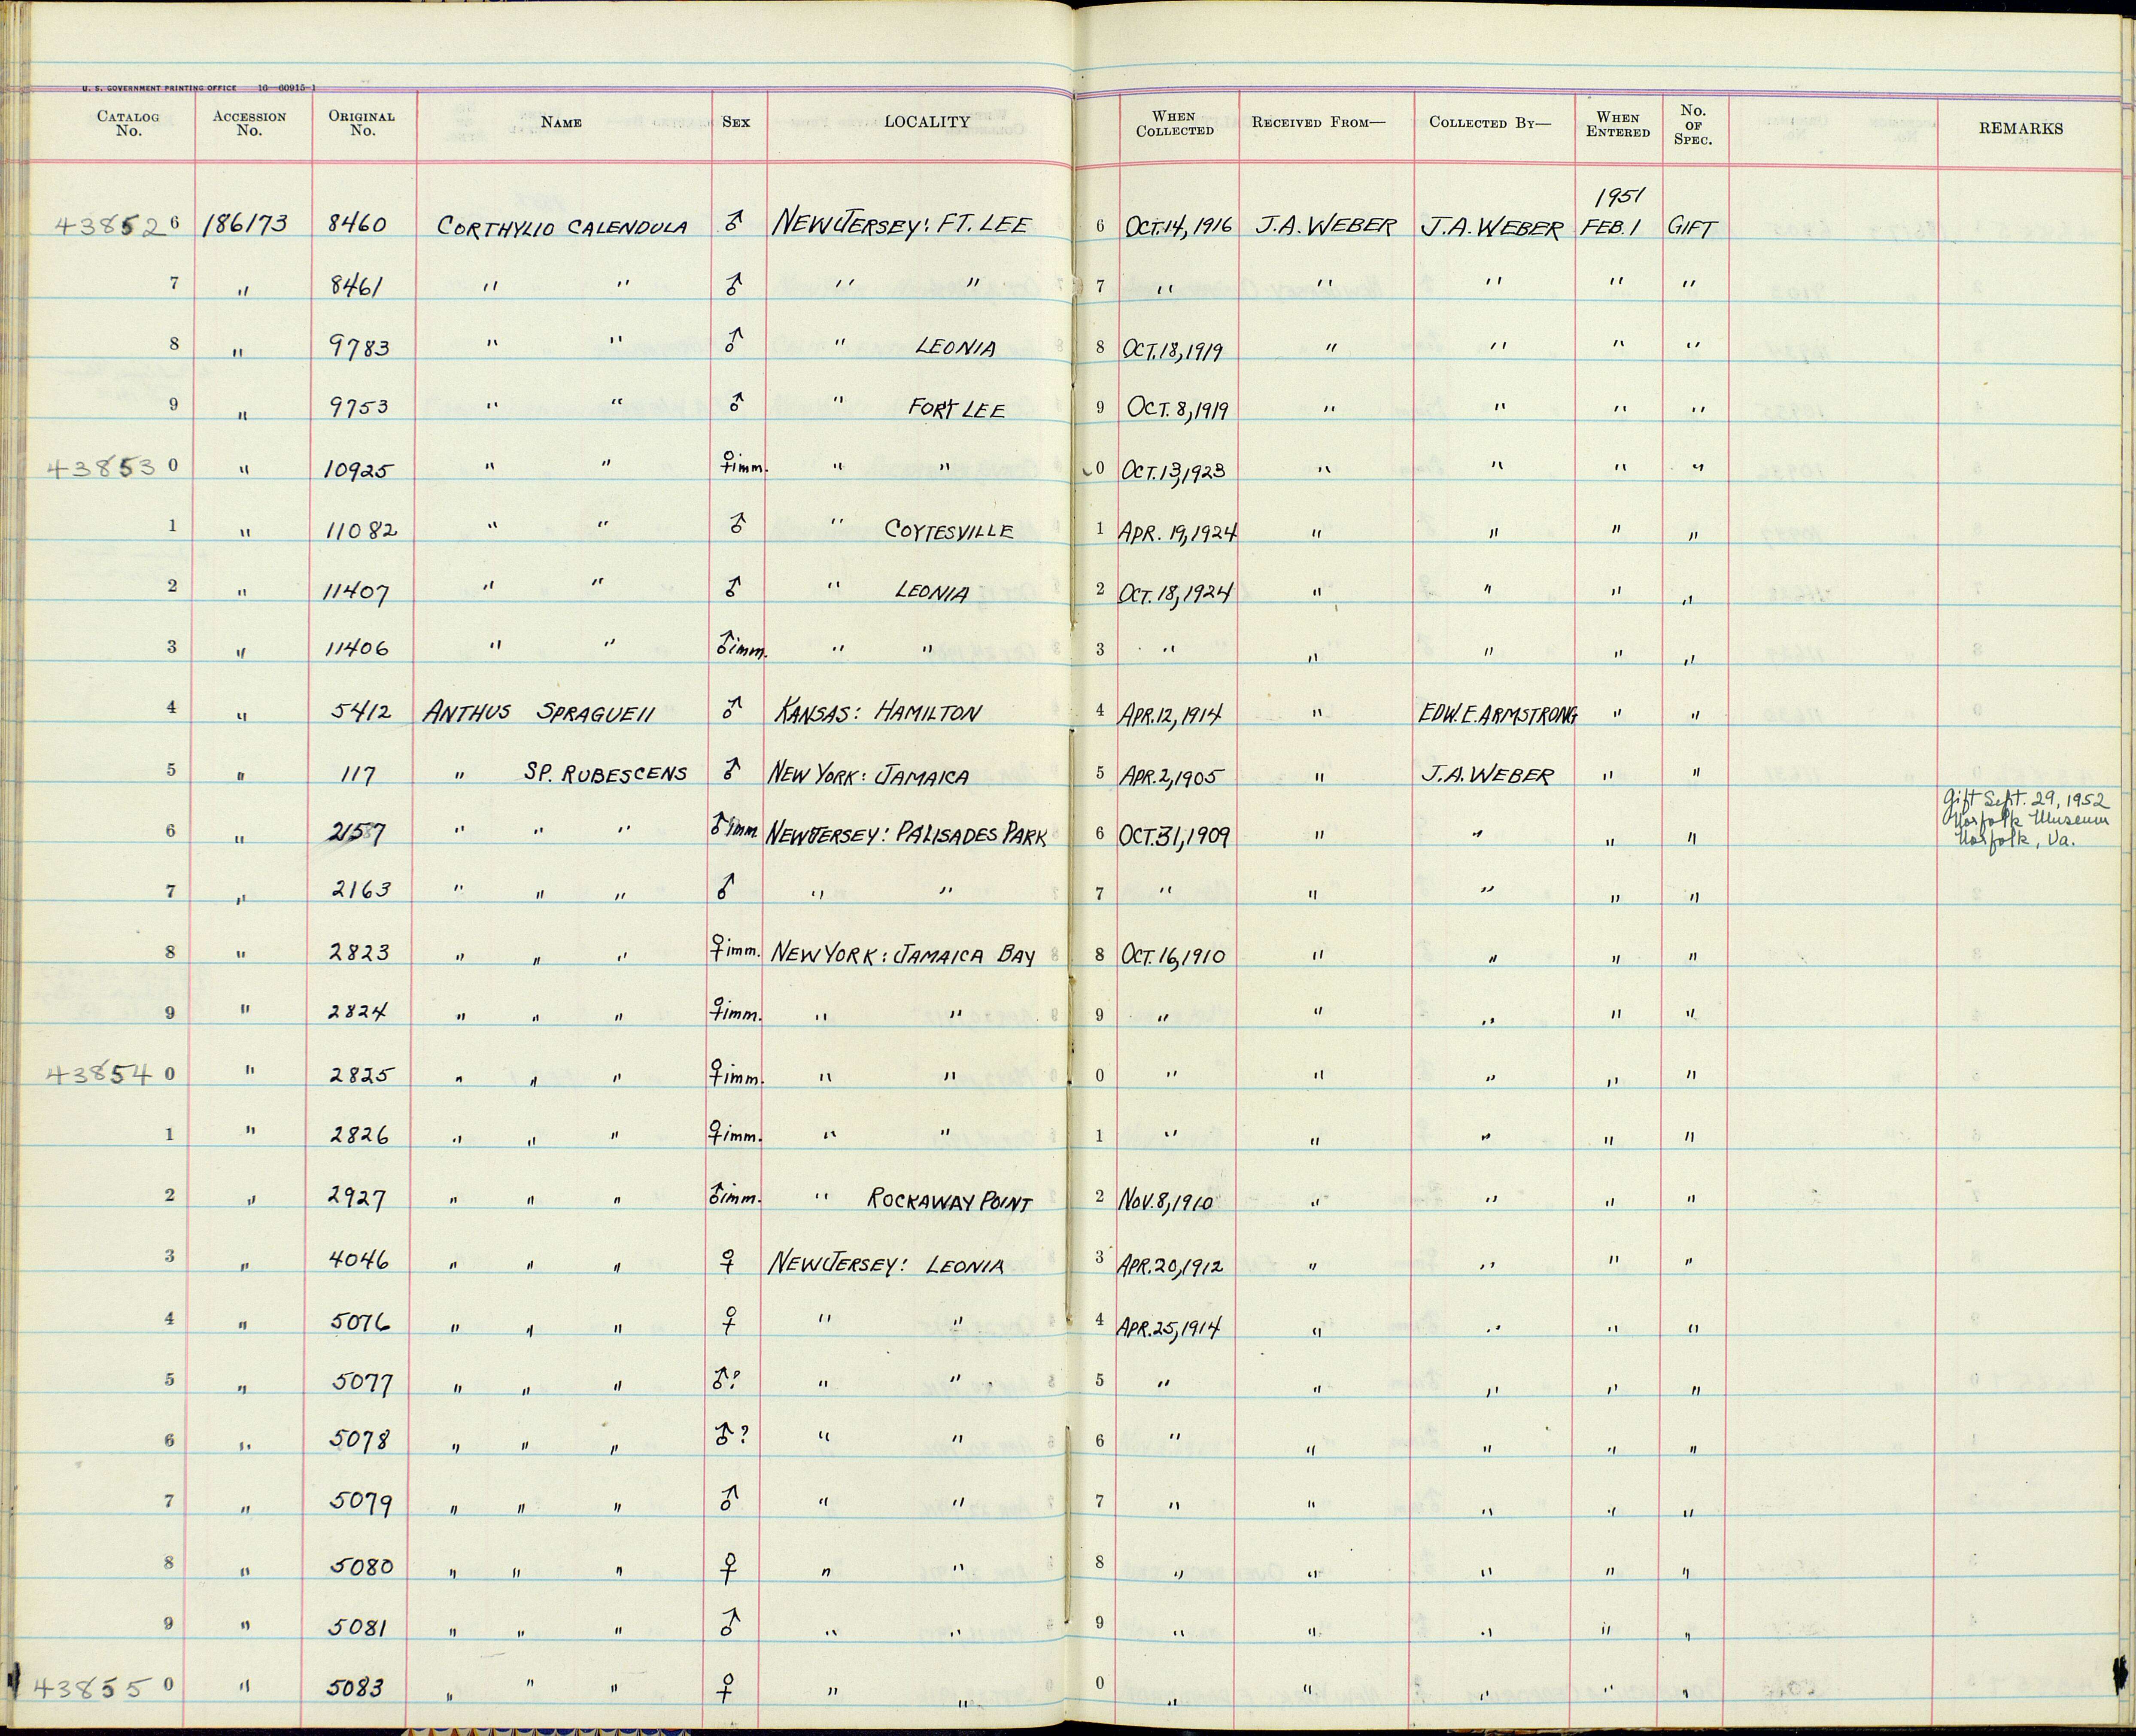 U. S. GOVERNMENT PRINTING OFFICE 16—60915-1
CATALOG No. ACCESSION No. ORIGINAL No. NAME SEX LOCALITY WHEN COLLECTED RECEIVED FROM— COLLECTED BY— WHEN ENTERED No. OF SPEC. REMARKS
1951
43852 6 186173 8460 CORTHYLIO CALENDULA ♂ NEW JERSEY: FT. LEE 6 OCT.14, 1916 J.A. WEBER J.A. WEBER FEB. 1 GIFT
7 " 8461 " " ♂ " " 7 " " " " "
8 " 9783 " " ♂ " LEONIA 8 OCT.18,1919 " " " "
9 " 9753 " " ♂ " FORT LEE 9 OCT. 8,1919 " " " "
43853 0 " 10925 " " ♀imm. " " 0 OCT.13,1923 " " " "
1 " 11082 " " ♂ " COYTESVILLE 1 APR. 19,1924 " " " "
2 " 11407 " " ♂ " LEONIA 2 OCT. 18,1924 " " " "
3 " 11406 " " ♂imm. " " 3 " " " " "
4 " 5412 ANTHUS SPRAGUEII ♂ KANSAS: HAMILTON 4 APR.12,1914 " EDW. E. ARMSTRONG " "
5 " 117 " SP. RUBESCENS ♂ NEW YORK: JAMAICA 5 APR. 2,1905 " J.A. WEBER " "
Gift Sept. 29, 1952
Norfolk Museum
Norfolk, Va.
6 " 2157 " " " ♂imm NEW JERSEY: PALISADES PARK 6 OCT.31,1909 " " " "
7 " 2163 " " " ♂ " " 7 " " " " "
8 " 2823 " " " ♀imm. NEW YORK: JAMAICA BAY 8 OCT. 16,1910 " " " "
9 " 2824 " " " ♀imm. " " 9 " " " " "
43854 0 " 2825 " " " ♀imm. " " 0 " " " " "
1 " 2826 " " " ♀imm. " " 1 " " " " "
2 " 2927 " " " ♂imm. " ROCKAWAY POINT 2 NOV. 8,1910 " " " "
3 " 4046 " " " ♀ NEW JERSEY: LEONIA 3 APR. 20,1912 " " " "
4 " 5076 " " " ♀ " " 4 APR. 25,1914 " " " "
5 " 5077 " " " ♂? " " 5 " " " " "
6 " 5078 " " " ♂? " " 6 " " " " "
7 " 5079 " " " ♂ " " 7 " " " " "
8 " 5080 " " " ♀ " " 8 " " " " "
9 " 5081 " " " ♂ " " 9 " " " " "
43855 0 " 5083 " " " ♀ " " 0 " " " " "